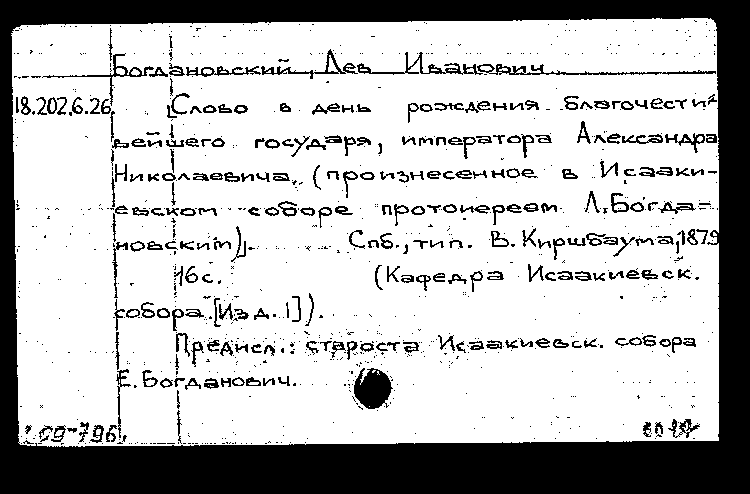 Богдановский, Лев Иванович
18.202.6.26. [Слово в день рождения благочести-
вейшего государя, императора Александра
Николаевича. (произнесенное в Исааки-
евском соборе протоиереем Л.Богда-
новским)]. Спб., тип. В. Киршбаума, 1879
16с. (Кафедра Исаакиевск.
собора.[Изд. 1]).
Предисл.: староста Исаакиевск. собора
Е. Богданович.
09-796.